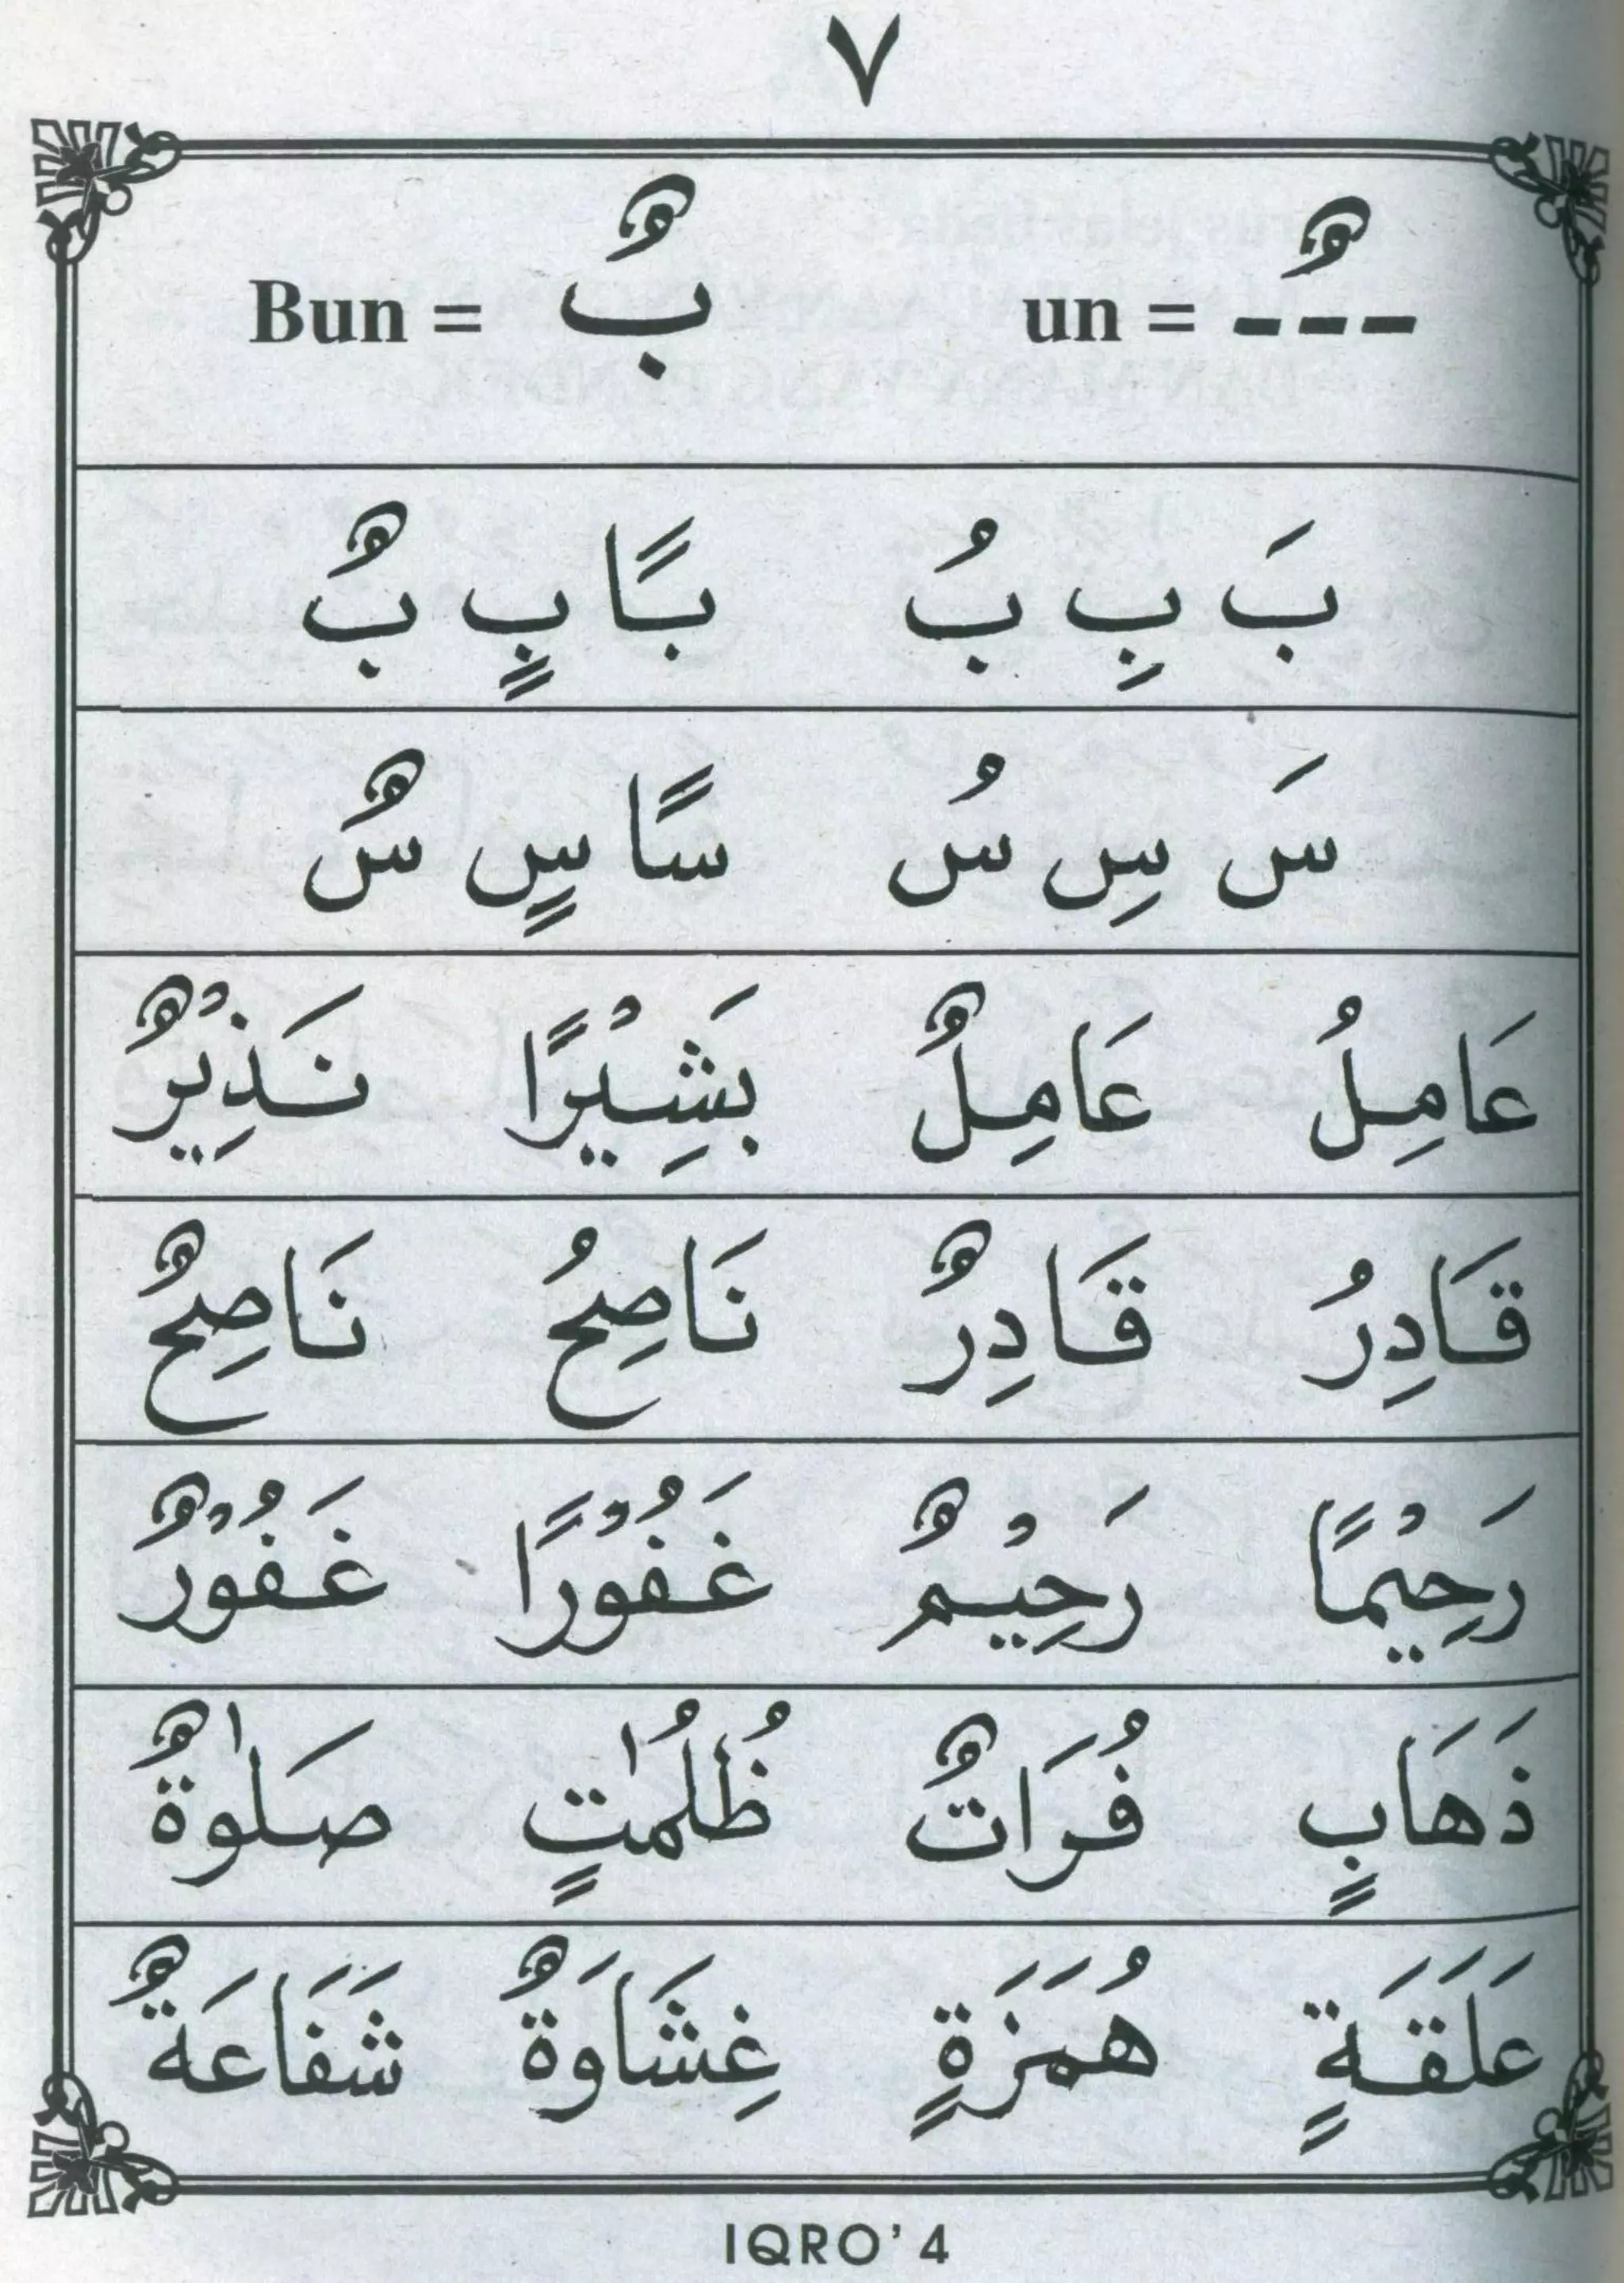 ٧
ـــٌ = un بٌ = Bun
بَ بِ بُ بًا بٍ بٌ
سَ سِ سُ سًا سٍ سٌ
عَامِلُ عَامِلٌ بَشِيْرًا نَذِيْرٌ
قَادِرُ قَادِرٌ نَاصِحُ نَاصِحٌ
رَحِيْمًا رَحِيْمٌ غَفُوْرًا غَفُوْرٌ
ذَهَابٍ فُرَاتٌ ظُلُمٰتٍ صَلٰوةٌ
عَلَقَةٍ هُمَزَةٍ غِشَاوَةٌ شَفَاعَةٌ
IQRO' 4